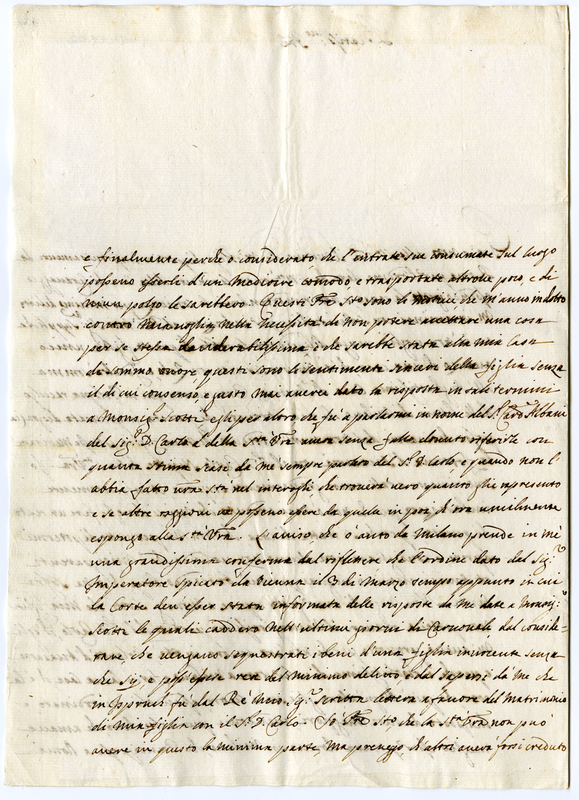 e finalmente perche ò considerato che l'entrate sue consumate sul luogo
possono esserli d'un mediocre comodo e trasportate altrove poco, e di
niun polzo le sarebbero. Questi Bmo Ste sono li motivi che m'anno indotto
contro mia voglia nella necessità di non potere accettare una cosa
per se stessa desiderabilissima e che sarebbe stata alla mia Casa
di sommo onore, questi sono li sentimenti sinceri della figlia senza
il di cui consenso e gusto mai averei dato la risposta in tali termini
a Monsigr Scotti egli per altro che fù a parlarmi in nome del Sr Card Albani
del Sigr D. Carlo e della Stà Vra averà senza fallo dovuto riferirle con
quanta stima siasi da me sempre parlato del Sr D Carlo e quando non l'
abbia fatto Vra Stà nel interoghi che troverà vero quanto gli rapresento
e se altre ragioni vi possono essere da quela in poi ch'ora umilmente
espongo alla Stà Vra. L'aviso che ò auto da Milano prende in mè
una grandissima conferma dal riflettere che l'ordine dato del Sigr
Imperatore spicatò da Vienna il 3 di Marzo tempo appunto in cui
la Corte deve esser stata informata delle risposte da Me date a Monsigr
Scotti le quali caddero nell'ultimi giorni di Carnevale, dal conside-
rare, che vengano sequestrati i beni d'una figlia innocente senza
che sij e possi essere rea del minimo delitto e dal sapersi da Me che
in Inspruch fù dal Rè Mio Sigr scritta lettera a favore del Matrimonio
di Mia figlia con il Sr D. Carlo. Sò Bmo Ste, che la Stà Vra non può
avere in questo la minima parte, ma presaggo d'altri averà forsi creduto